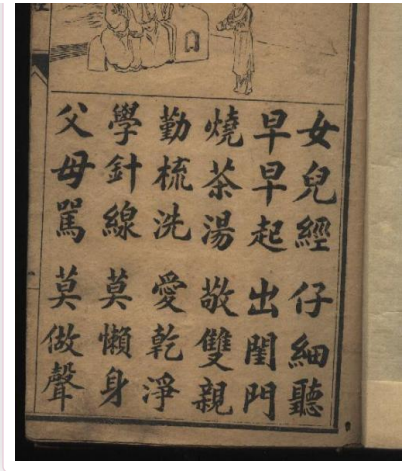 女兒經 仔細聽
早早起 出閨門
燒茶湯 敬雙親
勤梳洗 愛乾淨
學針線 莫懶身
父母罵 莫做聲